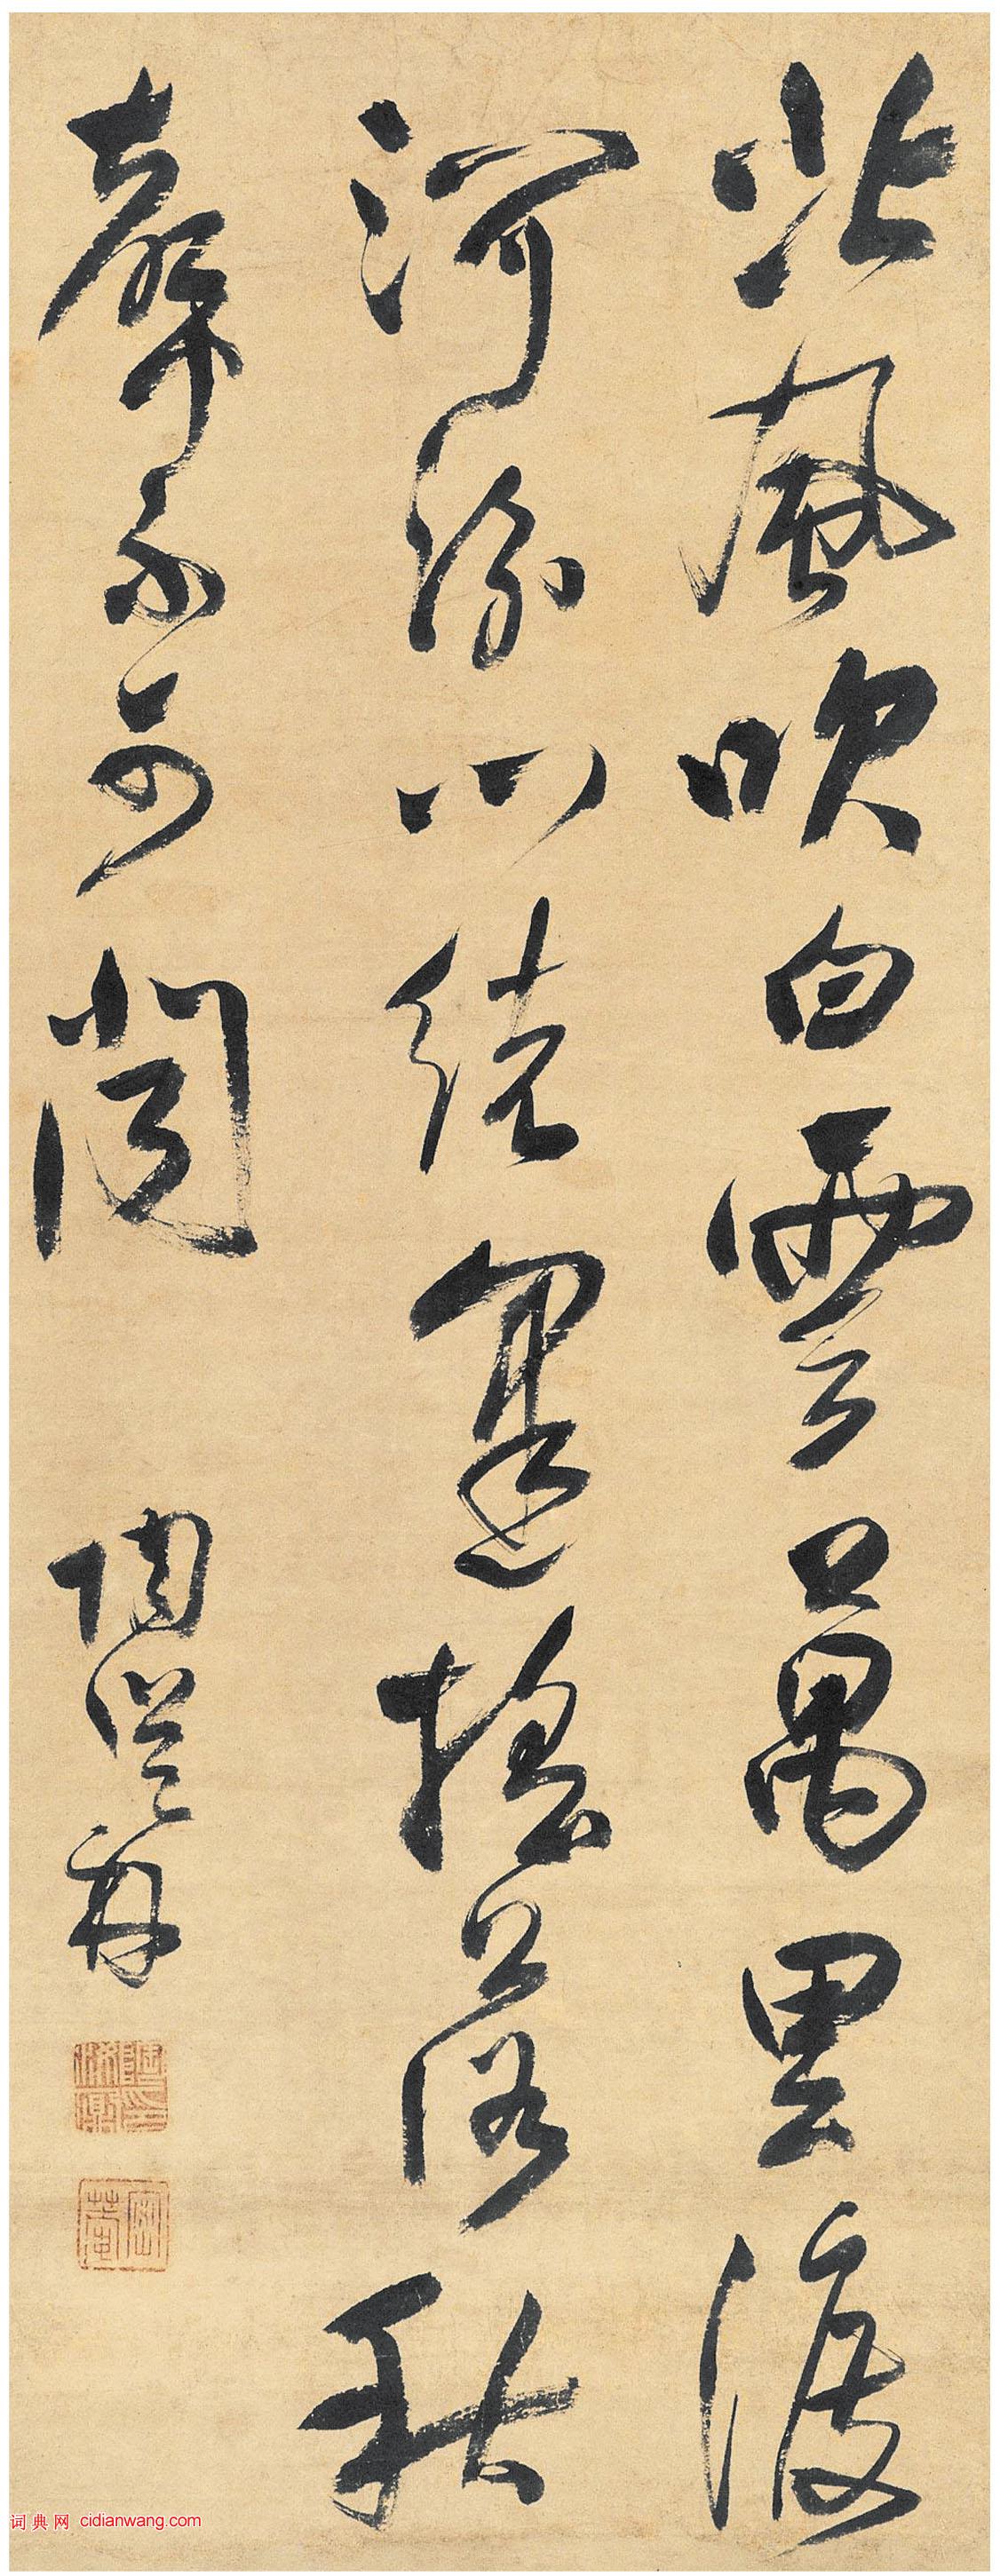 北風吹白雲萬里渡
河汾心緒逢搖落秋
聲不可聞
密菴
词典网 cidianwang.com